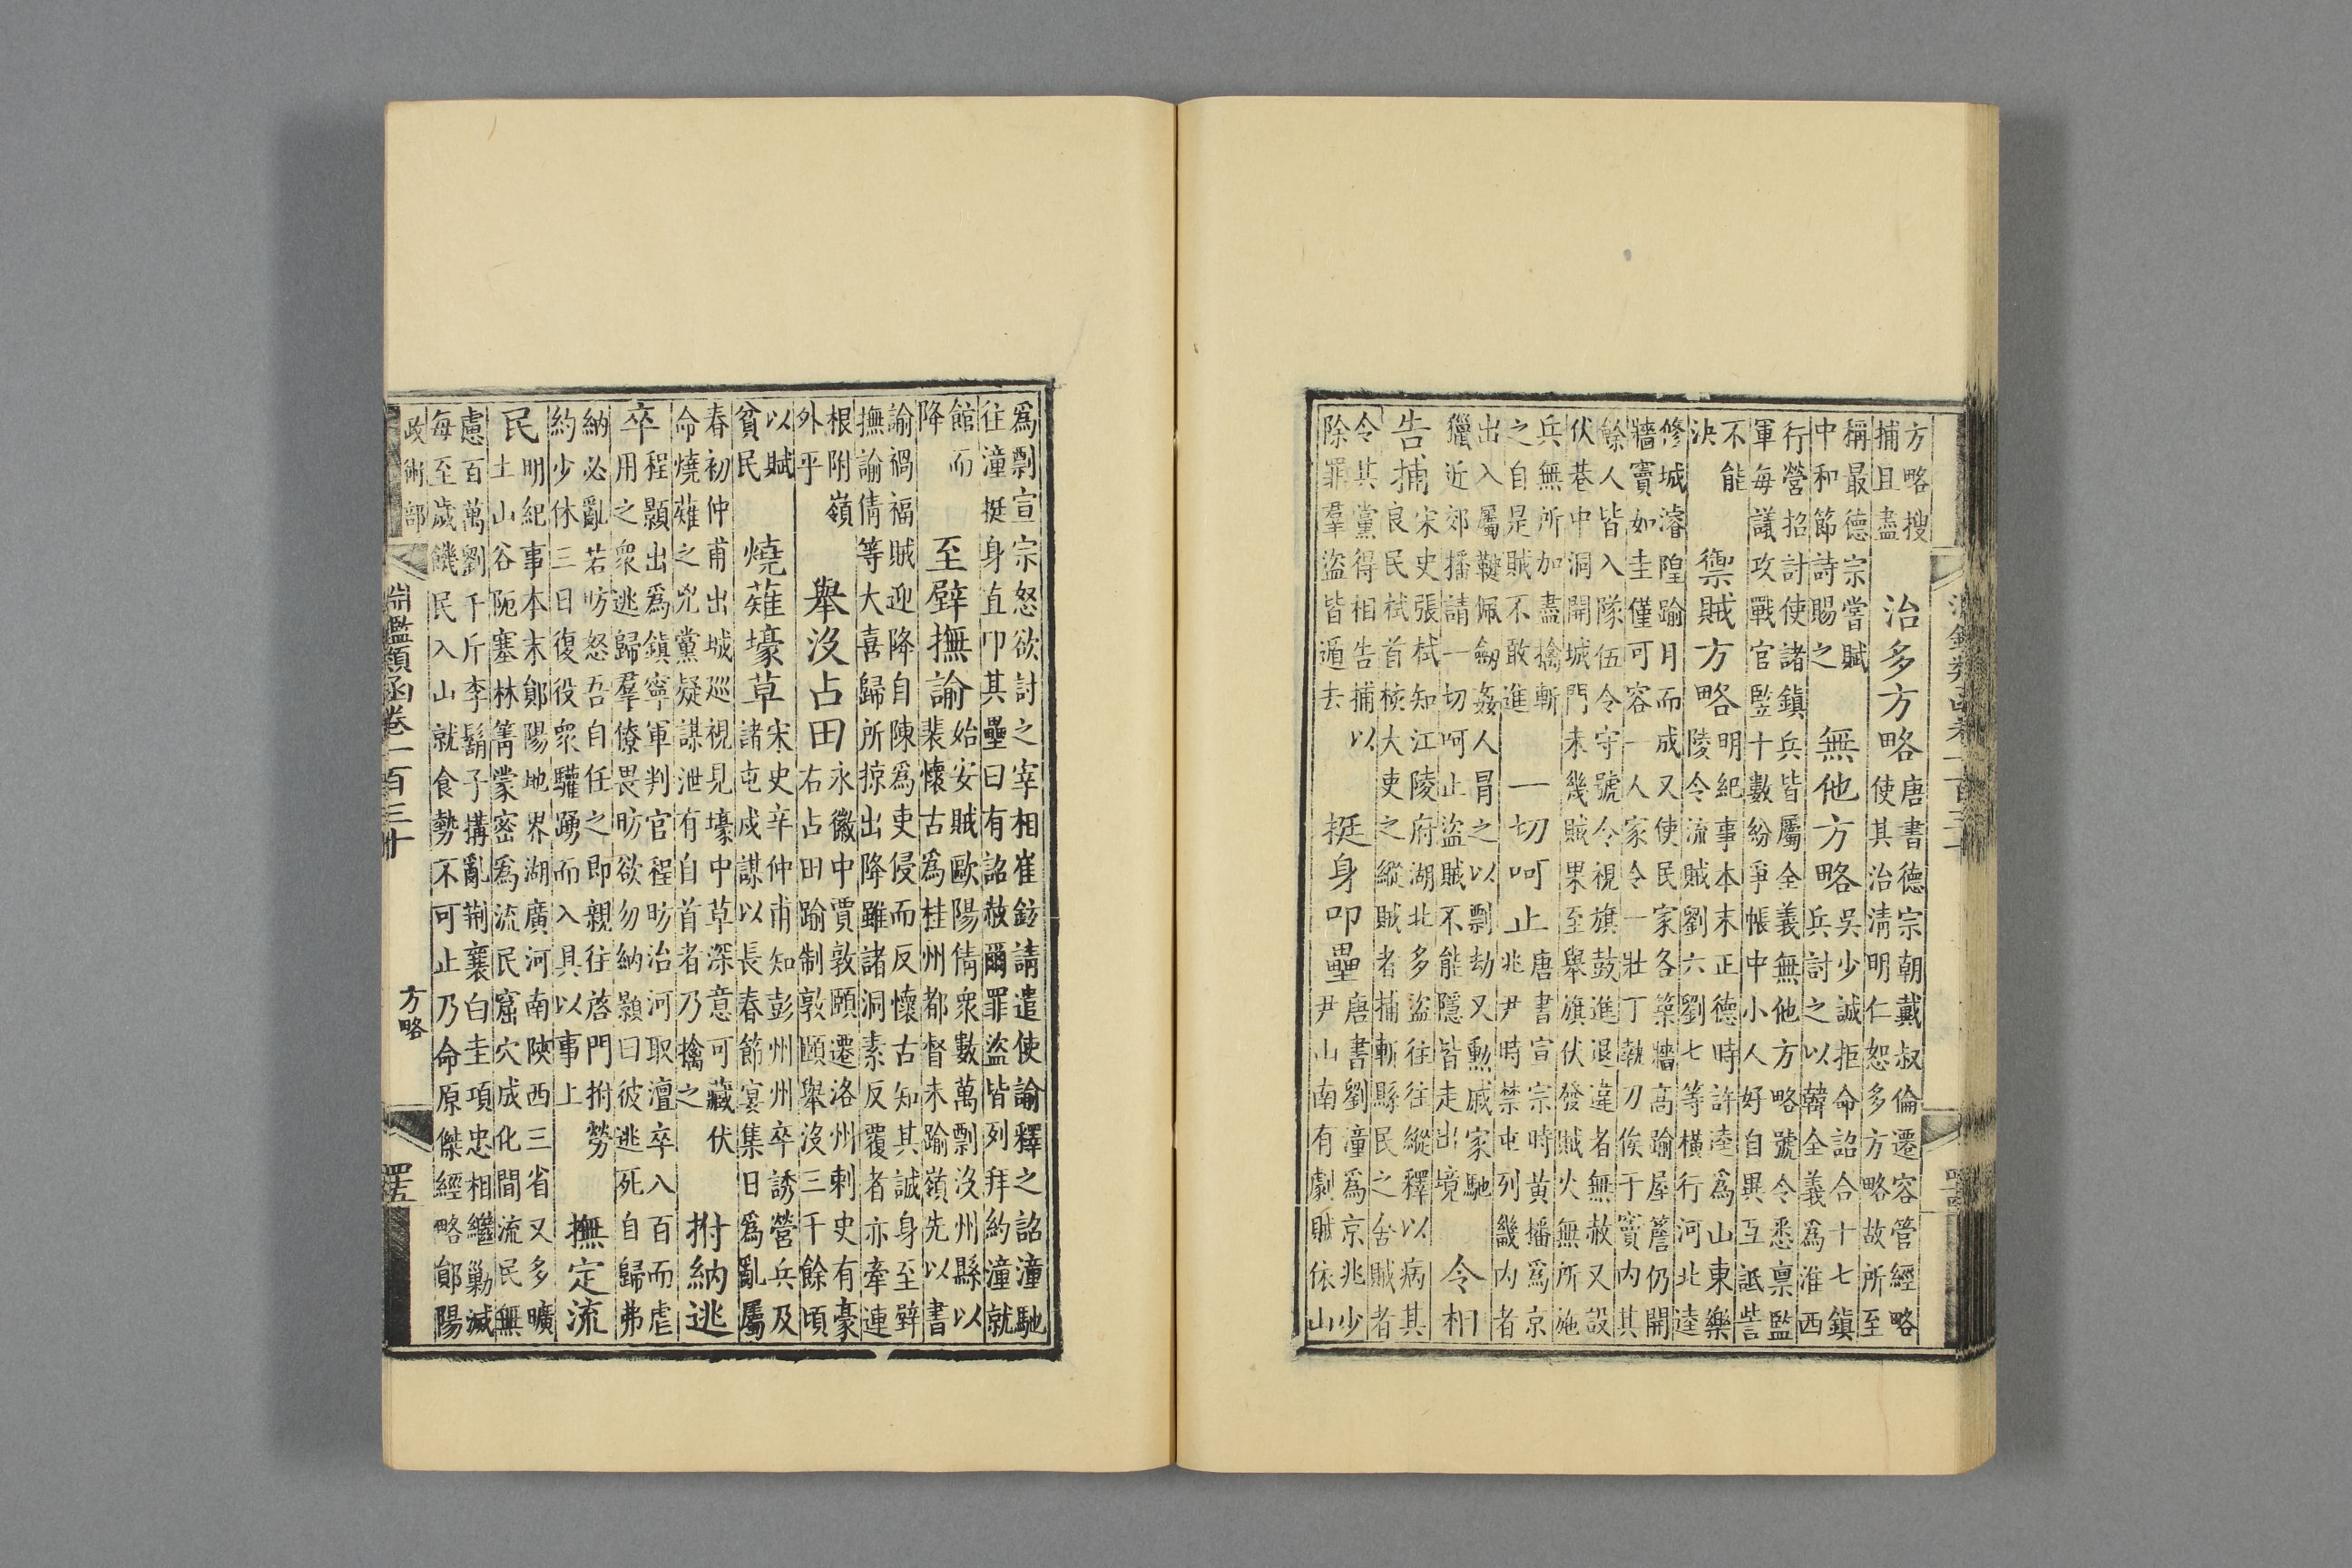 方略搜
捕且盡
治多方略
唐書德宗朝戴叔倫遷容管經略
使其治清明仁恕多方略故所至
稱最德宗嘗賦
中和節詩賜之
無他方略
吳少誠拒命詔合十七鎮
兵討之以韓全義爲淮西
行營招討使諸鎮兵皆屬全義無他方略號令悉禀監
軍每議攻戰官監十數紛爭帳中小人好自異互詆訾
不能
決
禦賊方略
明紀事本末正德時許逵爲山東樂
陵令流賊劉六劉七等橫行河北逵
修城濬隍踰月而成又使民家各築牆高踰屋簷仍開
牆竇如圭僅可容一人家令一壯丁執刀俟于竇內其
餘人皆入隊伍令守號令視旗鼓進退違者無赦又設
伏巷中洞開城門未幾賊果至舉旗伏發賊火無所施
兵無所加盡擒斬
之自是賊不敢進
一切呵止
唐書宣宗時黃播爲京
兆尹時禁屯列畿內者
出入屬鞬佩劒姦人冒之以剽劫又勳戚家馳
獵近郊播請一切呵止盜賊不能隱皆走出境
令相
告捕
宋史張栻知江陵府湖北多盜往往縱釋以病其
良民栻首核大吏之縱賊者捕斬縣民之舍賊者
令其黨得相告捕以
除罪羣盜皆遁去
挺身叩壘
唐書劉潼爲京兆少
尹山南有劇賊依山
爲剽宣宗怒欲討之宰相崔鉉請遣使諭釋之詔潼馳
往潼挺身直叩其壘曰有詔赦爾罪盜皆列拜約潼就
館而
降
至壁撫諭
始安賊歐陽倩衆數萬剽沒州縣以
裴懷古爲桂州都督未踰嶺先以書
諭禍福賊迎降自陳爲吏侵而反懷古知其誠身至壁
撫諭倩等大喜歸所掠出降雖諸洞素反覆者亦牽連
根附嶺
外平
舉沒占田
永徽中賈敦頤遷洛州刺史有豪
右占田踰制敦頤舉沒三千餘頃
以賦
貧民
燒薙壕草
宋史辛仲甫知彭州州卒誘營兵及
諸屯戍謀以長春節宴集日爲亂屬
春初仲甫出城巡視見壕中草深意可藏伏
命燒薙之兇黨疑謀泄有自首者乃擒之
拊納逃
卒
程顥出爲鎮寧軍判官程昉治河取澶卒八百而虐
用之衆逃歸羣僚畏昉欲勿納顥曰彼逃死自歸弗
納必亂若昉怒吾自任之即親往啓門拊勞
約少休三日復役衆驩踴而入具以事上
撫定流
民
明紀事本末鄖陽地界湖廣河南陝西三省又多曠
土山谷阨塞林箐蒙密爲流民窟穴成化間流民無
慮百萬劉千斤李鬍子搆亂荆襄白圭項忠相繼勦滅
每至歲饑民入山就食勢不可止乃命原傑經略鄖陽
政術部
淵鑑類函卷一百三十
方略